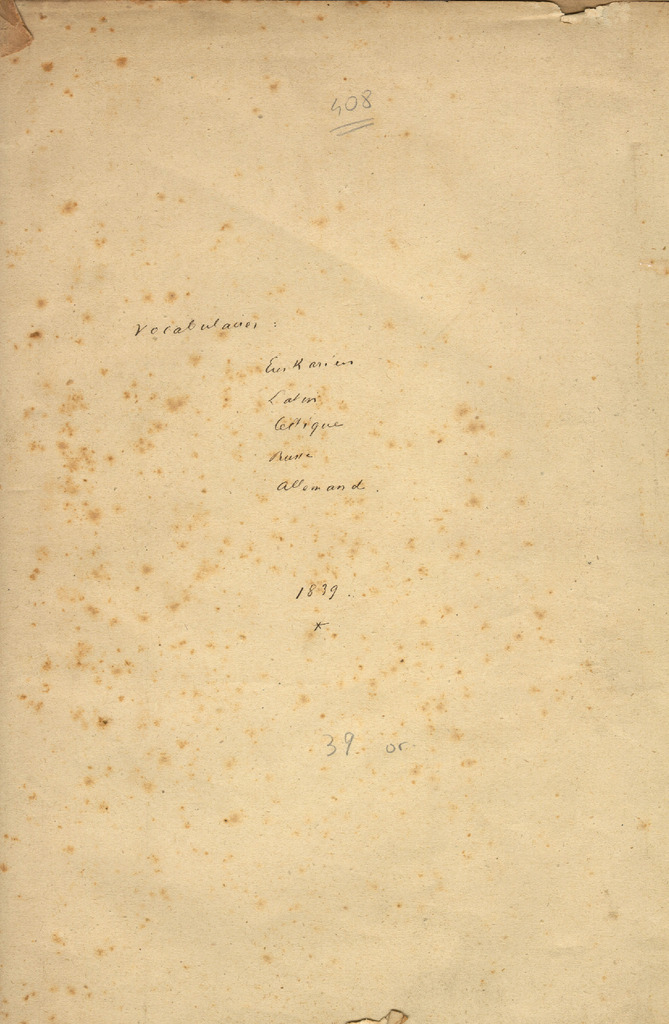 408
Vocabulaires :
Euskarien
Latin
Celtique
Russe
Allemand.
1839.
*
39. or